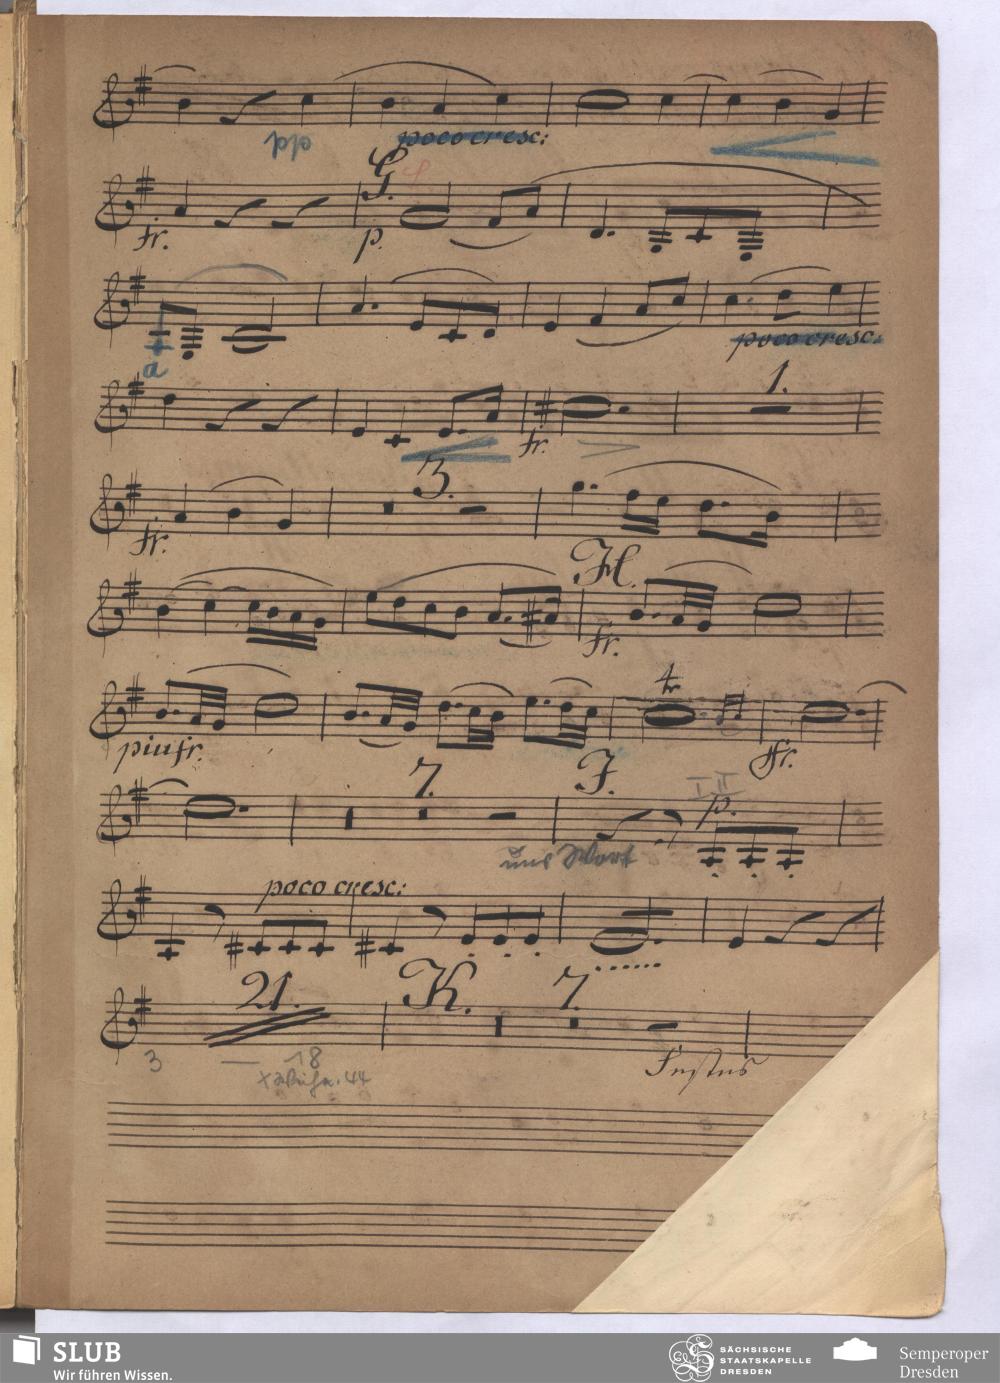 pp poco cresc:
G. f.
fr. p.
poco cresc.
a
1.
fr.
3.
fr.
H.
fr.
tr
piu fr. ffr.
7. J. I II
p.
uns Wort
poco cresc:
21. K. 7.
3 — 18
44
SLUB
Wir führen Wissen.
SÄCHSISCHE
STAATSKAPELLE
DRESDEN
Semperoper
Dresden